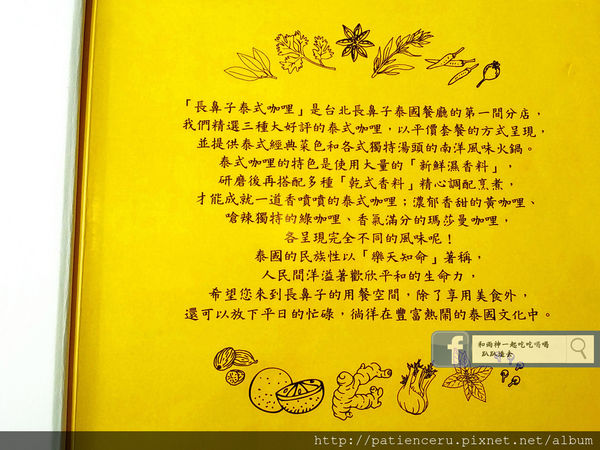 「長鼻子泰式咖哩」是台北長鼻子泰國餐廳的第一間分店，
我們精選三種大好評的泰式咖哩，以平價套餐的方式呈現，
並提供泰式經典菜色和各式獨特湯頭的南洋風味火鍋。
泰式咖哩的特色是使用大量的「新鮮濕香料」，
研磨後再搭配多種「乾式香料」精心調配烹煮，
才能成就一道香噴噴的泰式咖哩；濃郁香甜的黃咖哩、
嗆辣獨特的綠咖哩、香氣滿分的瑪莎曼咖哩，
各呈現完全不同的風味呢！
泰國的民族性以「樂天知命」著稱，
人民間洋溢著歡欣平和的生命力，
希望您來到長鼻子的用餐空間，除了享用美食外，
還可以放下平日的忙碌，徜徉在豐富熱鬧的泰國文化中。
f
和雨神一起吃吃喝喝
趴趴造去
http://patienceru.pixnet.net/album